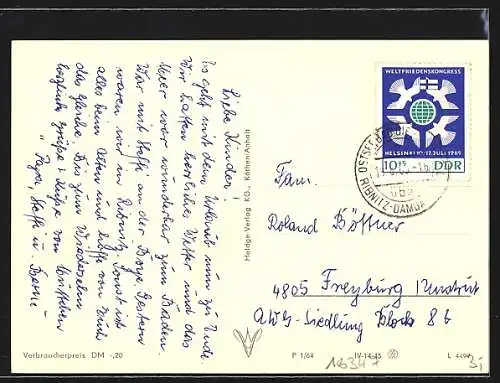 Liebe Kinder!
Es geht mit dem Urlaub nun zu Ende.
Wir hatten herrliches Wetter und das
Meer war wunderbar zum Baden.
War mit Steffi auf der Bojе. Gestern
waren wir in Ribnitz. Sonst ist
alles beim Alten und hoffe von Euch
das Gleiche. Bis zum Wiedersehen
herzliche Grüße u. Küsse von
Papa, Steffi u.
Heldge-Verlag KG., Köthen/Anhalt
WELTFRIEDENSKONGRESS
HELSINKI 10.-17. JULI 1965
10+5 DDR
OSTSEEBAD
RIBNITZ-DAMGARTEN
Fam.
Roland Böttner
4805 Freyburg/Unstrut
AWG-Siedlung Block 8 b
Verbraucherpreis DM -,20
P 1/64
IV-14-45
L 4494